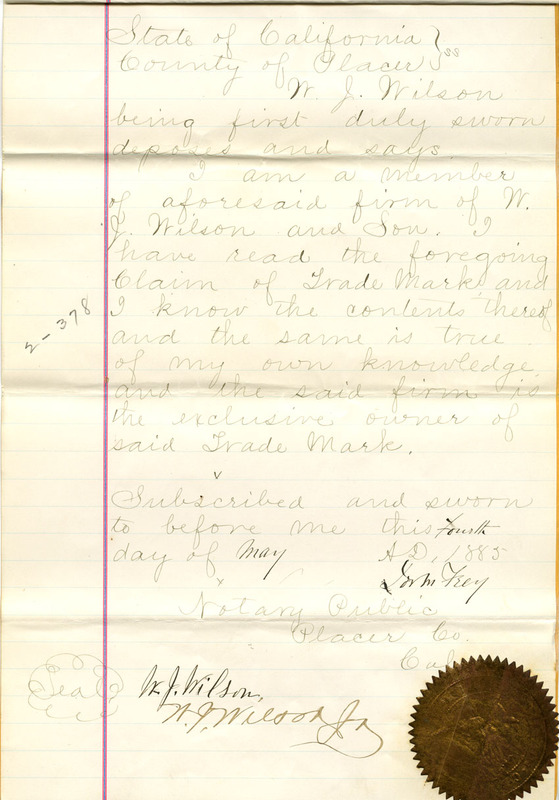 State of California } ss
County of Placer
W. J. Wilson
being first duly sworn
deposes and says
I am a member
of aforesaid firm of W.
J. Wilson and Son. I
have read the foregoing
Claim of Trade Mark, and
I know the contents thereof
and the same is true
of my own knowledge,
and the said firm is
the exclusive owner of
said Trade Mark.
2-378
Subscribed and sworn
to before me this Fourth
day of May A.D. 1885
John Frey
Notary Public
Placer Co.
Cal
Seal
W. J. Wilson.
W. J. Wilson Jr